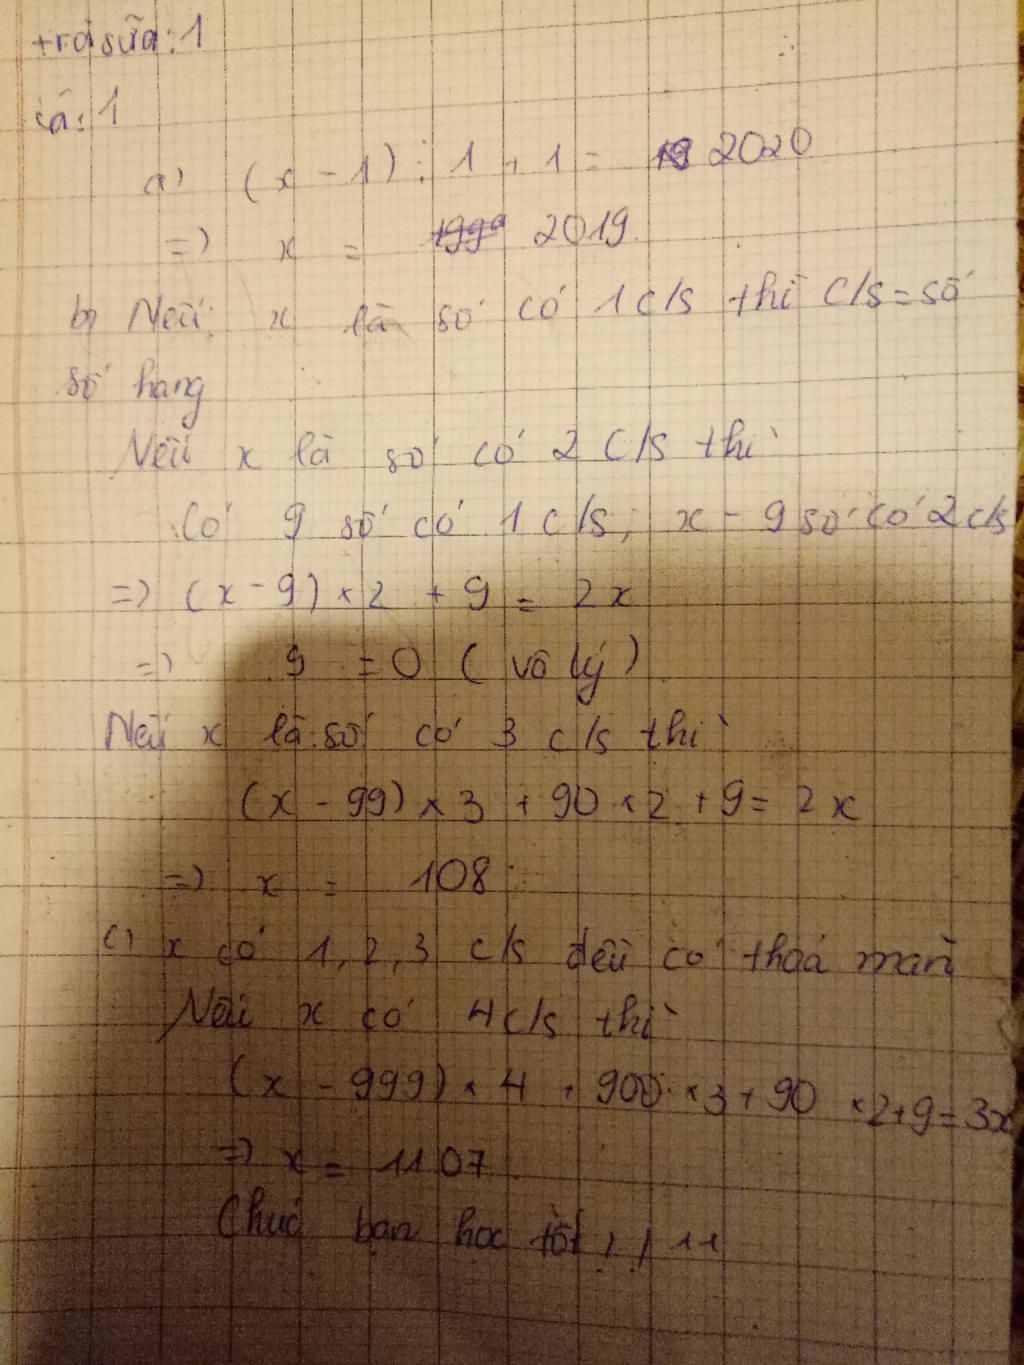 trà sữa: 1
cá: 1
a) (x - 1) : 1 + 1 = 2020
=> x = 2019
b) Nếu x là số có 1 c/s thì c/s = số
số hạng
Nếu x là số có 2 c/s thì
Có 9 số có 1 c/s, x - 9 số có 2 c/s
=> (x - 9) × 2 + 9 = 2x
=> 9 = 0 (vô lý)
Nếu x là số có 3 c/s thì
(x - 99) × 3 + 90 × 2 + 9 = 2x
=> x = 108
c) x có 1, 2, 3 c/s đều có thoả mãn
Nếu x có 4 c/s thì
(x - 999) × 4 + 900 × 3 + 90 × 2 + 9 = 3x
=> x = 1107
Chúc bạn học tốt